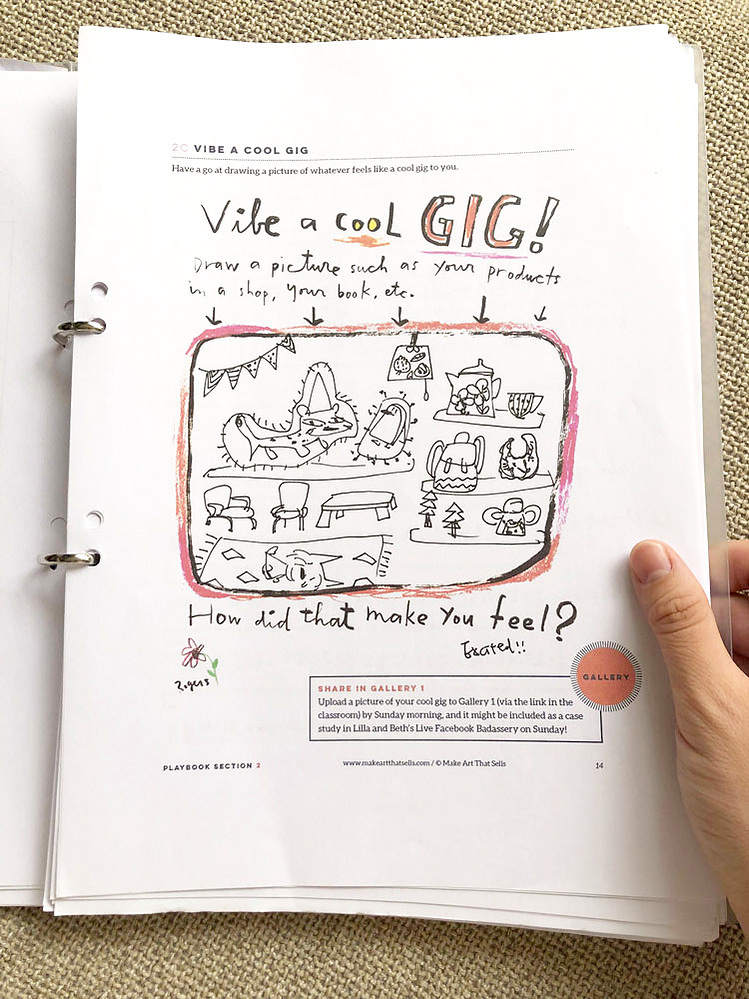 2C VIBE A COOL GIG
Have a go at drawing a picture of whatever feels like a cool gig to you.
Vibe a cool GIG!
Draw a picture such as your products
in a shop, your book, etc.
How did that make you feel?
Excited!!
GALLERY
SHARE IN GALLERY 1
Upload a picture of your cool gig to Gallery 1 (via the link in the
classroom) by Sunday morning, and it might be included as a case
study in Lilla and Beth's Live Facebook Badassery on Sunday!
PLAYBOOK SECTION 2
www.makeartthatsells.com / © Make Art That Sells
14